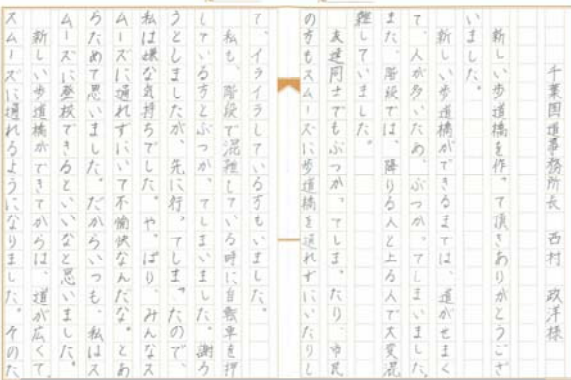 千葉国道事務所長　西村　政洋様
新しい歩道橋を作って頂きありがとうござ
いました。
新しい歩道橋ができるまでは、道がせまく
て、人が多いため、ぶつかってしまいました。
また、階段では、降りる人と上る人で大変混
雑していました。
友達同士でもぶつかってしまったり、市民
の方もスムーズに歩道橋を通れずにいたりし
て、イライラしている方もいました。
私も、階段で混雑している時に自転車を押
している方とぶつかってしまいました。謝ろ
うとしましたが、先に行ってしまったので、
私は嫌な気持ちでした。やっぱり、みんなス
ムーズに通れずにいて不愉快なんだな。とあ
らためて思いました。だからいつも、私はス
ムーズに登校できるといいなと思いました。
新しい歩道橋ができてからは、道が広くて、
スムーズに通れるようになりました。そのた